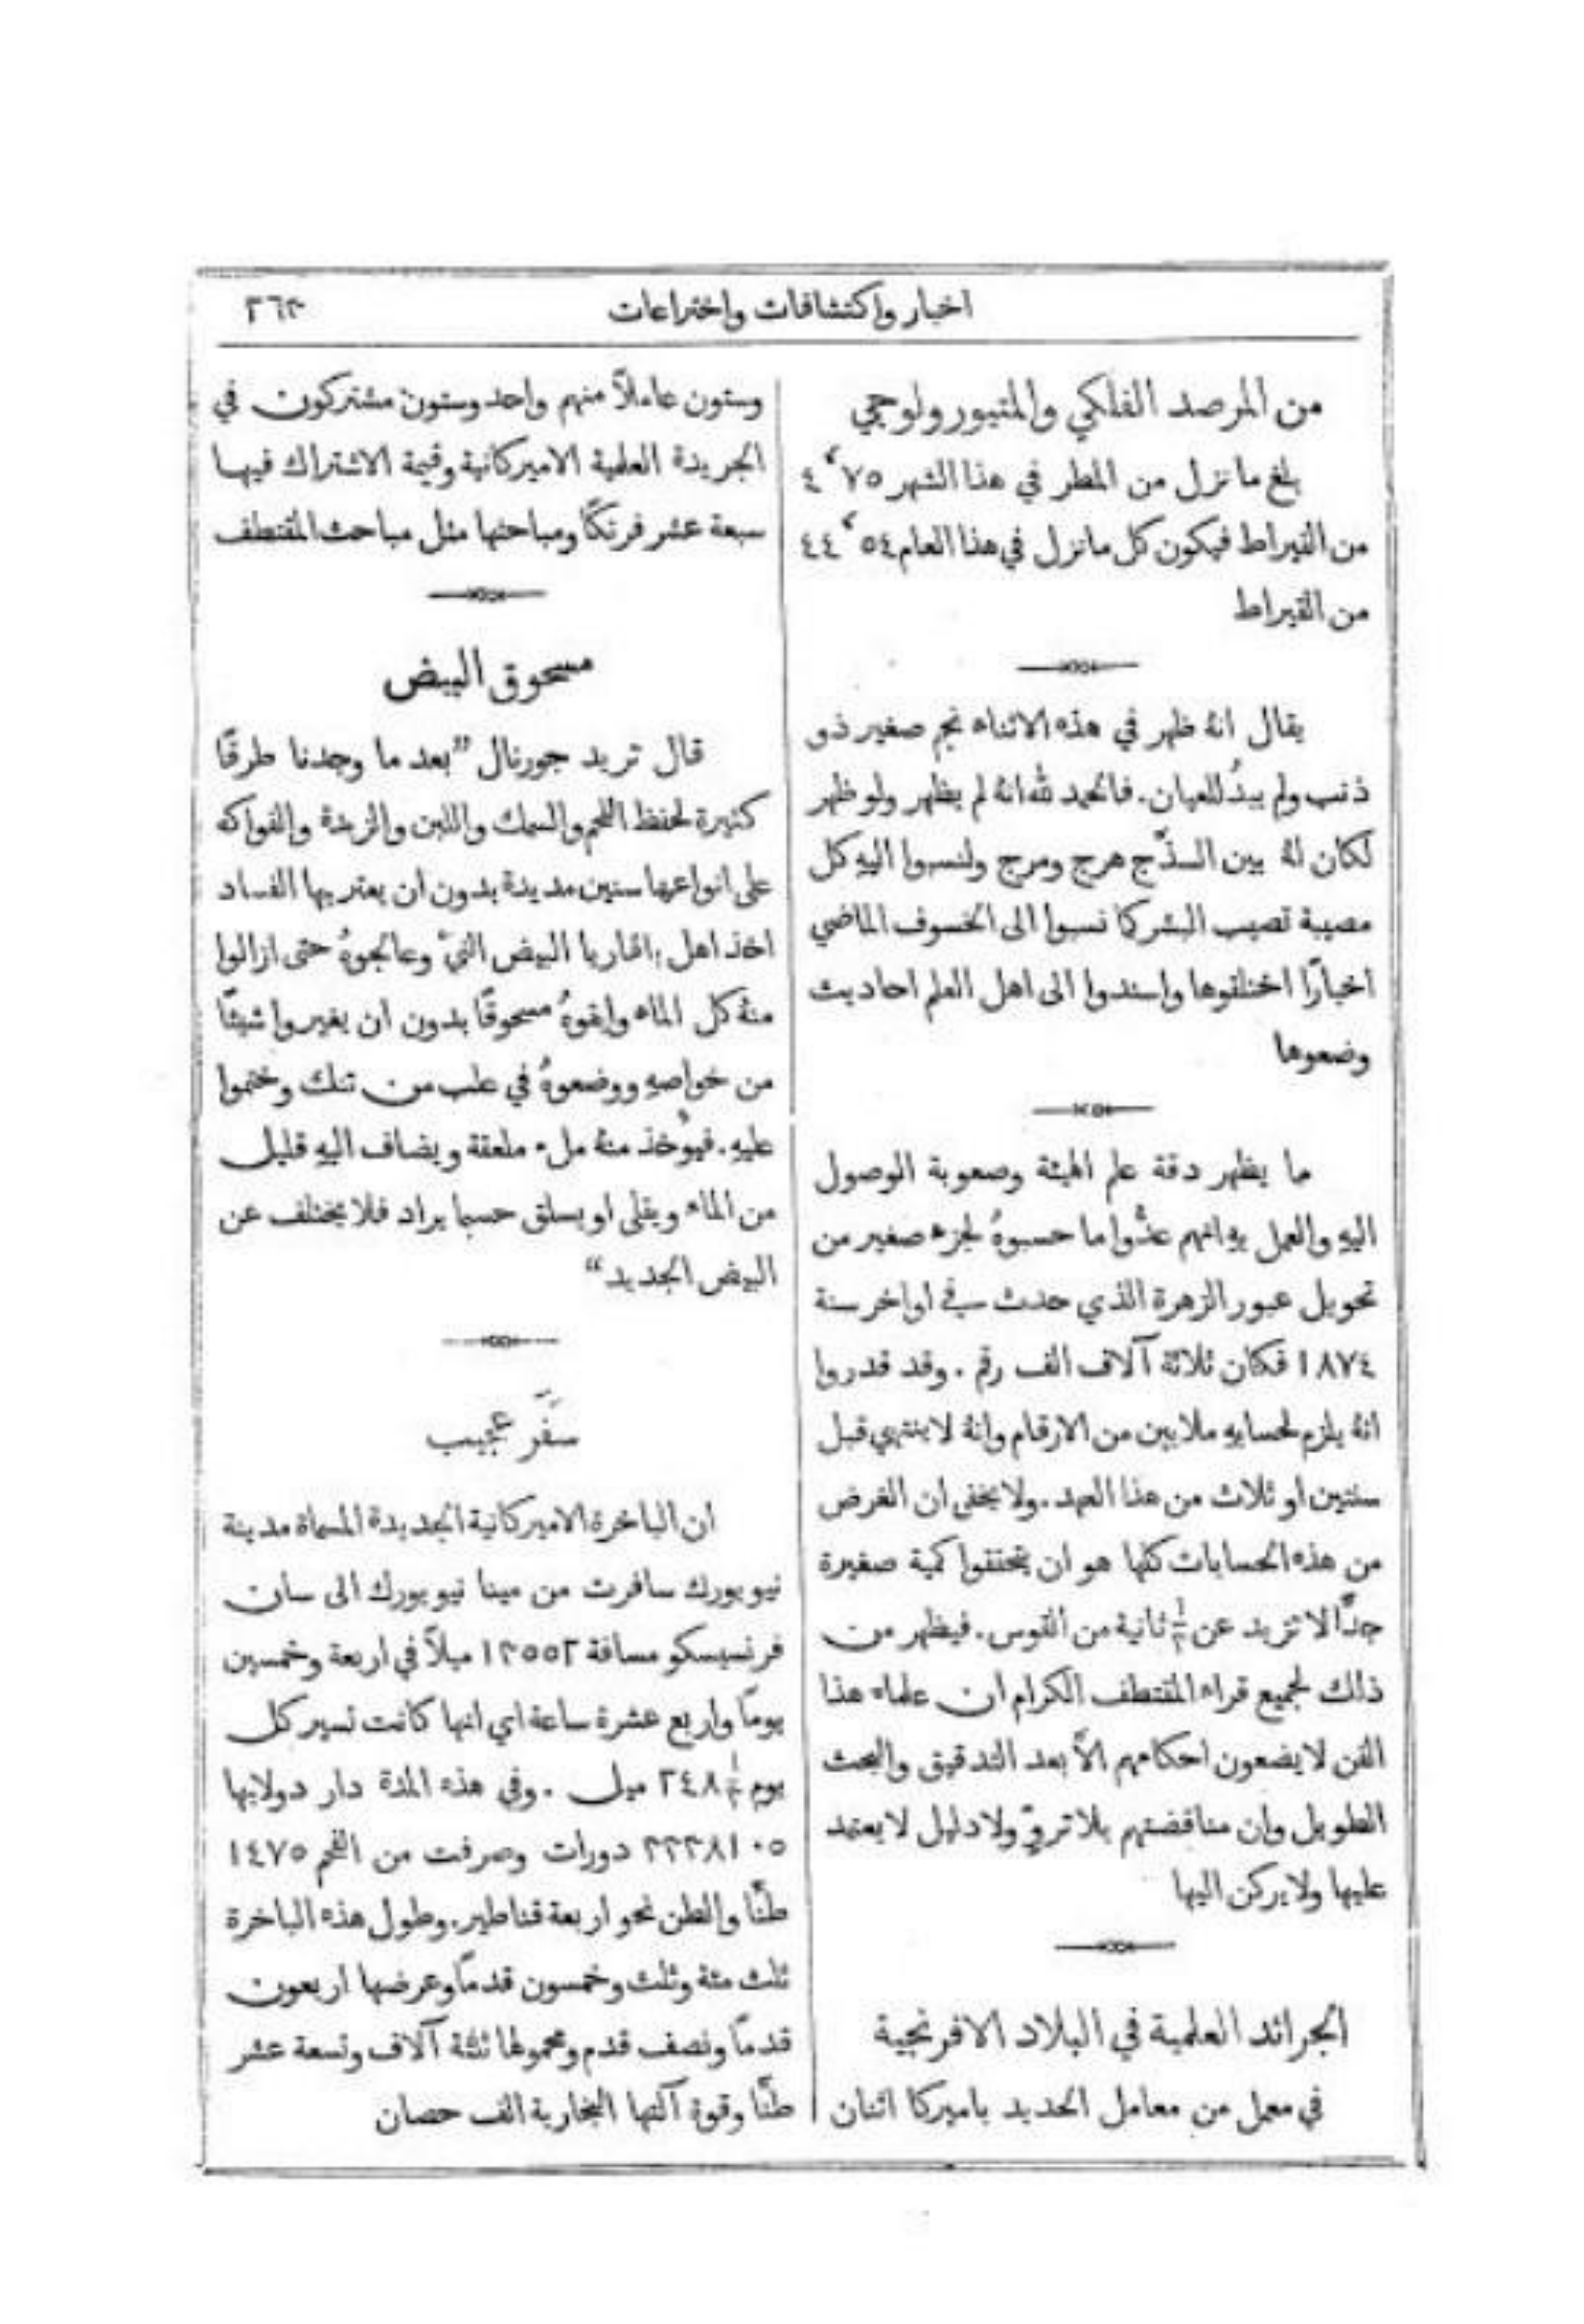 اخبار واكتشافات واختراعات
٢٦٣
من المرصد الفلكي والمتيورولوجي
بلغ ما نزل من المطر في هذا الشهر ٧٥‘٤
من القيراط فيكون كل ما نزل في هذا العام ٥٤‘٤٤
من القيراط
يقال انهُ ظهر في هذه الاثناء نجم صغير ذو
ذنب ولم يبدُ للعيان. فالحمد لله انهُ لم يظهر ولو ظهر
لكان لهُ بين السذَّج هرج ومرج ولنسبوا اليهِ كل
مصيبة تصيب البشر كما نسبوا الى الخسوف الماضي
اخبارًا اختلقوها واسندوا الى اهل العلم احاديث
وضعوها
ما يظهر دقة علم الهيئة وصعوبة الوصول
اليهِ والعمل بهِ انهم عدُّوا ما حسبوهُ لجزء صغير من
تحويل عبور الزهرة الذي حدث في اواخر سنة
١٨٧٤ فكان ثلاثة آلاف الف رقم. وقد قدروا
انهُ يلزم لحسابهِ ملايين من الارقام وانهُ لا ينتهي قبل
سنتين او ثلاث من هذا العهد. ولا يخفى ان الغرض
من هذه الحسابات كلها هو ان يتحققوا كمية صغيرة
جدًّا لا تزيد عن ثانية من القوس. فيظهر من
ذلك لجميع قراء المقتطف الكرام ان علماء هذا
الفن لا يضعون احكامهم الَّا بعد التدقيق والبحث
الطويل وان مناقضتهم بلا تروٍّ ولا دليل لا يعتمد
عليها ولا يركن اليها
الجرائد العلمية في البلاد الافرنجية
في معمل من معامل الحديد باميركا اثنان
وستون عاملاً منهم واحد وستون مشتركون في
الجريدة العلمية الاميركانية وقيمة الاشتراك فيها
سبعة عشر فرنكًا ومباحثها مثل مباحث المقتطف
مسحوق البيض
قال تريد جورنال ”بعد ما وجدنا طرقًا
كثيرة لحفظ اللحم والسمك واللبن والزبدة والفواكه
على انواعها سنين مديدة بدون ان يعتريها الفساد
اخذ اهل بافاريا البيض النيّ وعالجوهُ حتى ازالوا
منهُ كل الماء وابقوهُ مسحوقًا بدون ان يغيروا شيئًا
من خواصهِ ووضعوهُ في علب من تنك وختموا
عليهِ. فيوُخذ منهُ ملء ملعقة ويضاف اليهِ قليل
من الماء ويقلى او يسلق حسبما يراد فلا يختلف عن
البيض الجديد“
سَفَر عجيب
ان الباخرة الاميركانية الجديدة المسماة مدينة
نيويورك سافرت من مينا نيويورك الى سان
فرنسيسكو مسافة ١٣٥٥٢ ميلاً في اربعة وخمسين
يومًا واربع عشرة ساعة اي انها كانت تسير كل
يوم ٢٤٨ ميل. وفي هذه المدة دار دولابها
دورات وصرفت من الفحم ١٤٧٥
طنًّا والطن نحو اربعة قناطير. وطول هذه الباخرة
ثلث مئة وثلث وخمسون قدمًا وعرضها اربعون
قدمًا ونصف قدم ومحمولها ثلثة آلاف وتسعة عشر
طنًّا وقوة آلتها البخارية الف حصان